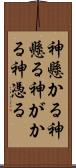 神懸かる神
懸る神がか
る神憑る